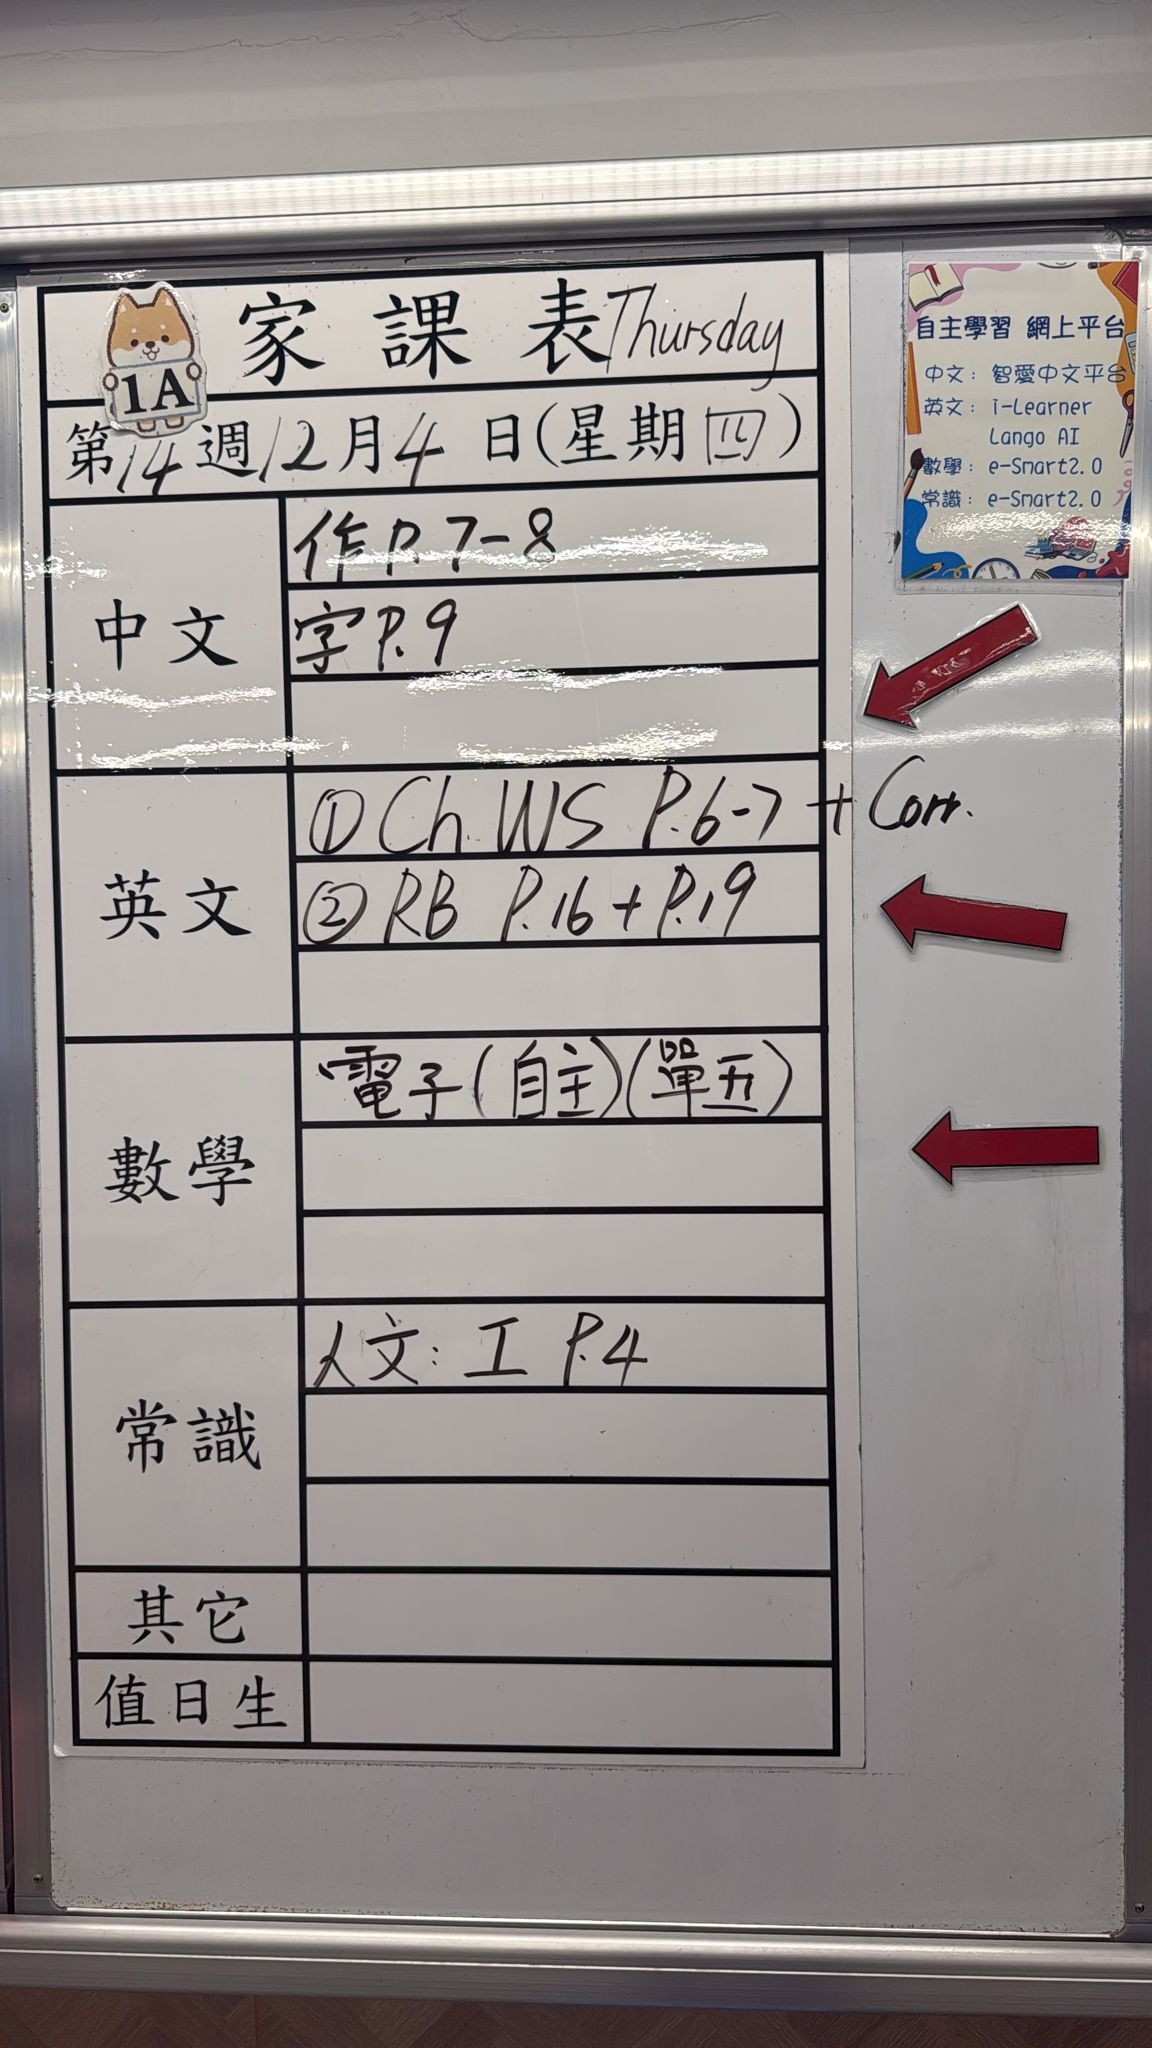 家課表 Thursday
1A
第14週12月4日(星期四)
中文
作P.7-8
字P.9
英文
① Ch WS P.6-7 + Corr.
② RB P.16 + P.19
數學
電子(自主)(單五)
常識
人文: 工 P.4
其它
值日生
自主學習 網上平台
中文: 智愛中文平台
英文: i-Learner
Lango AI
數學: e-Smart2.0
常識: e-Smart2.0